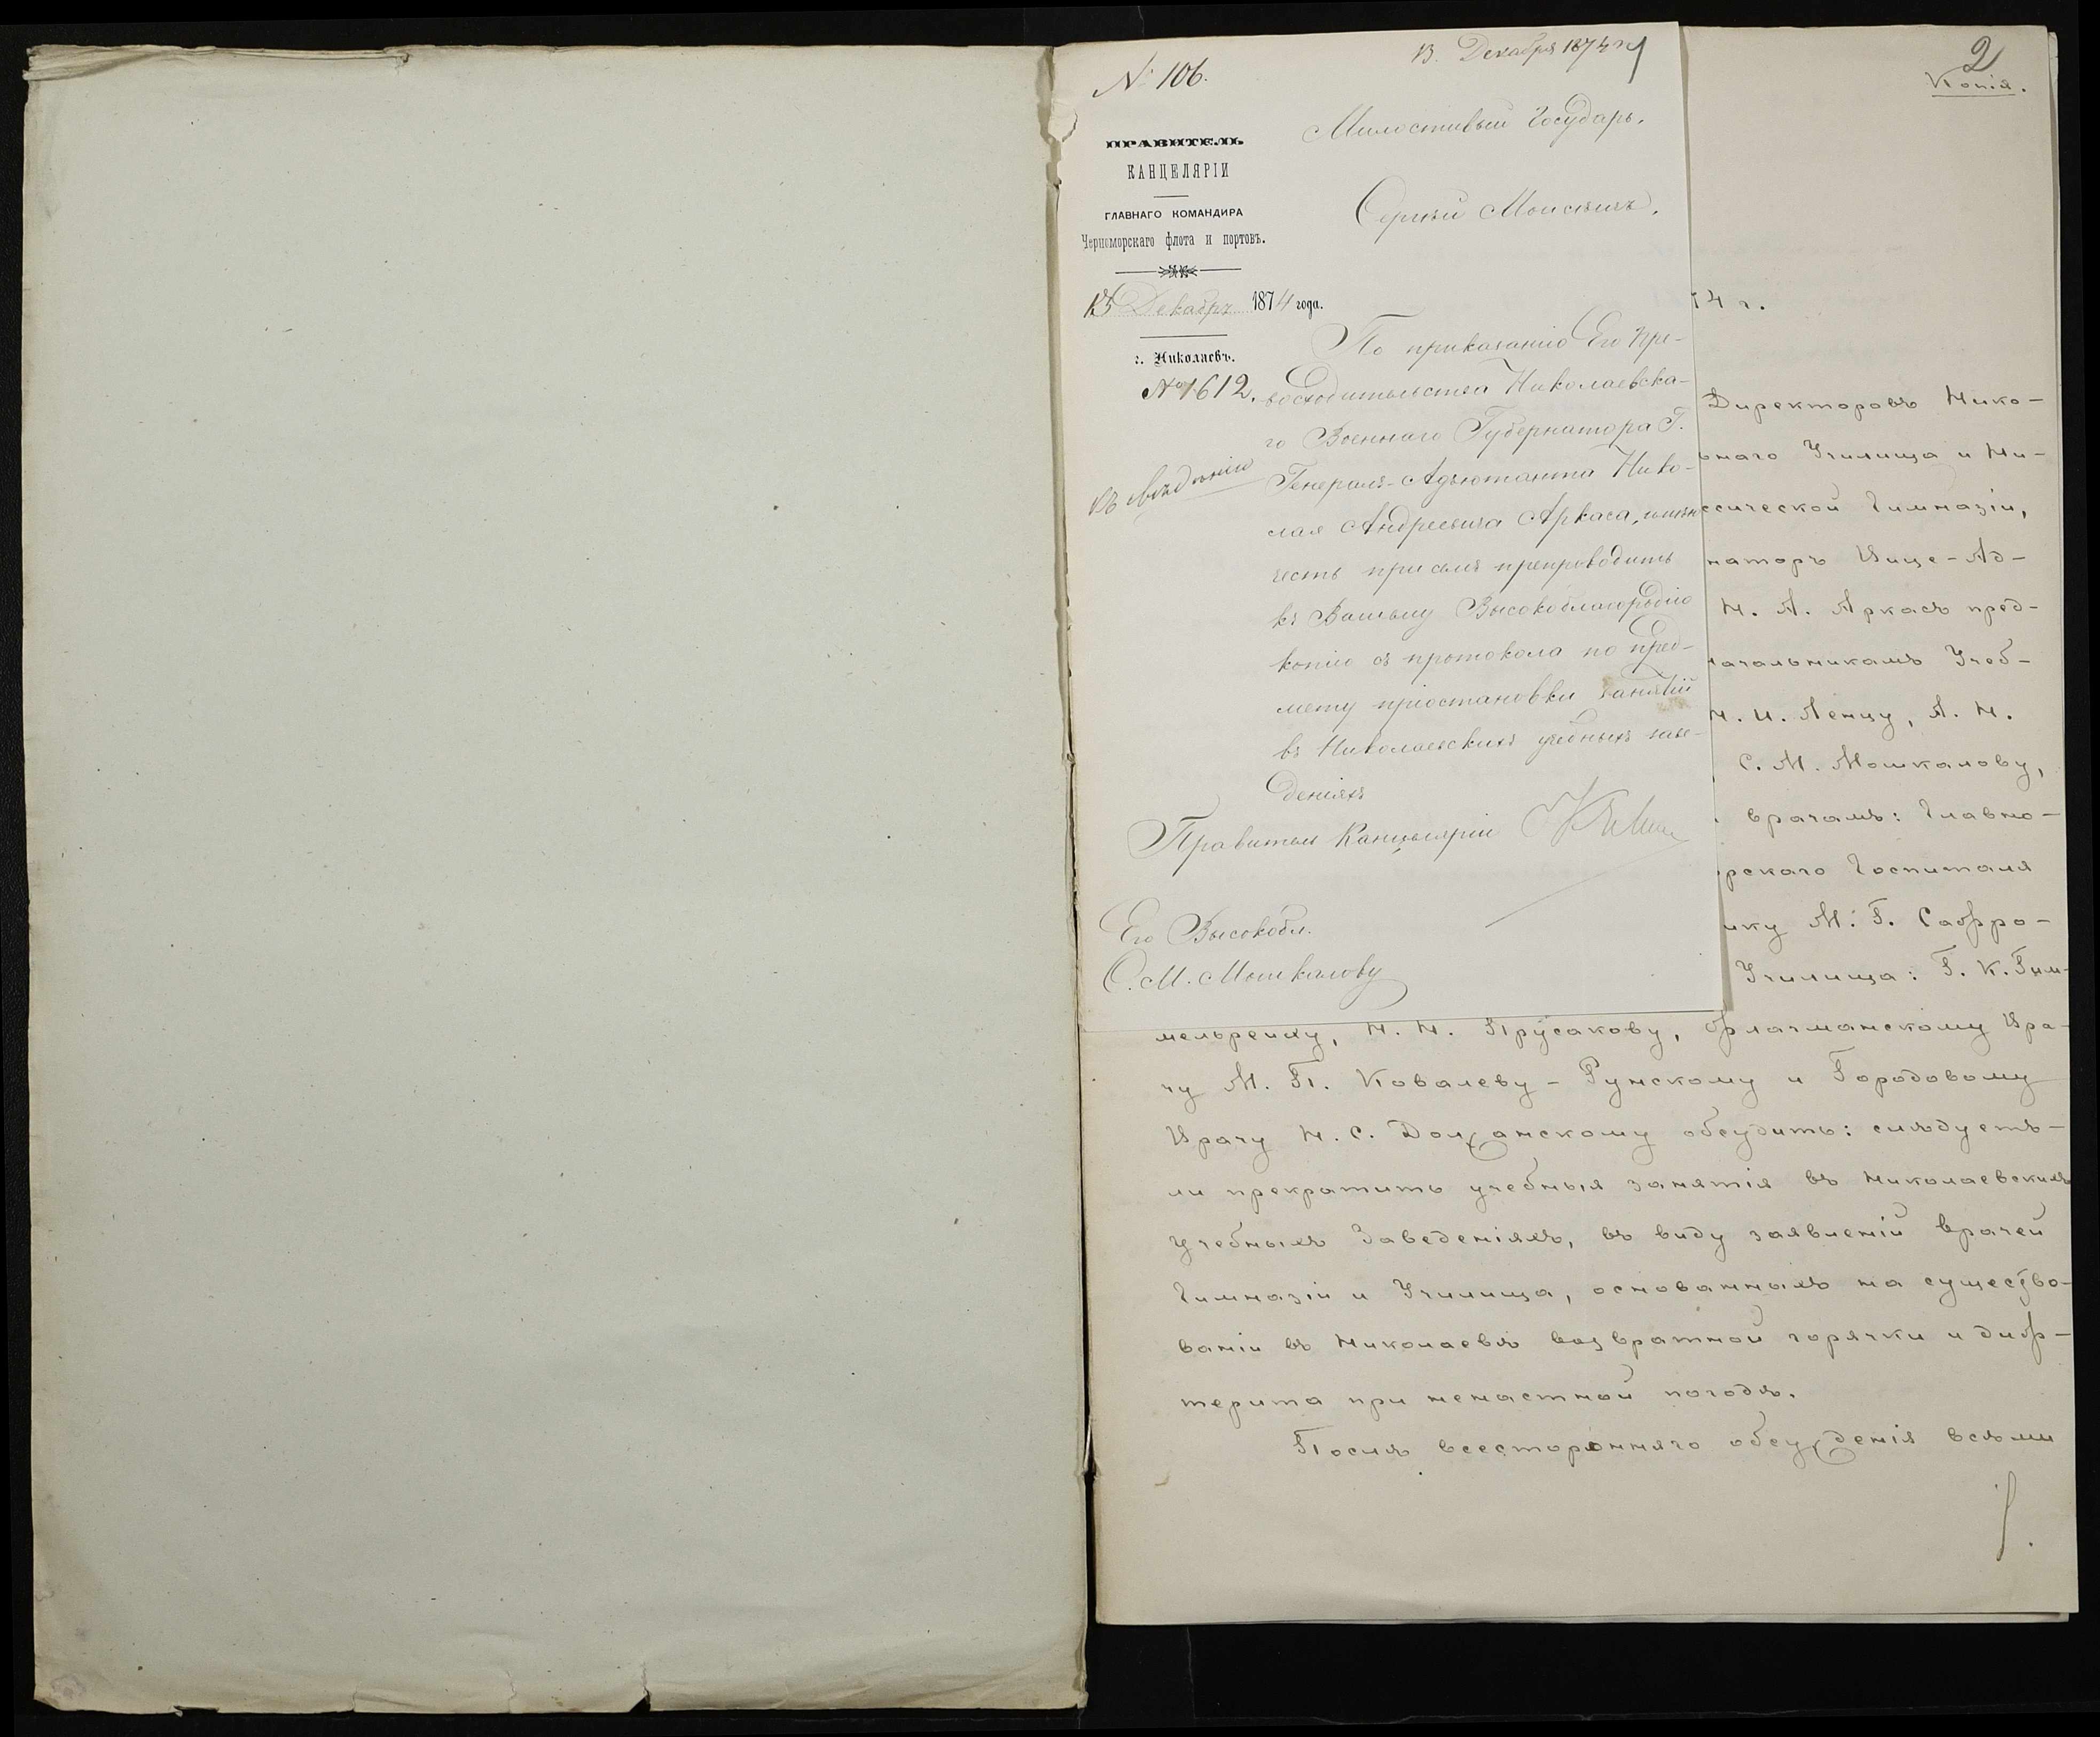 № 106.
13. Декабря 1874 г.
1
ПРАВИТЕЛЬ
КАНЦЕЛЯРІИ
ГЛАВНАГО КОМАНДИРА
Черноморскаго флота и портовъ.
13 Декабря 1874 года.
г. Николаевъ.
№ 1612.
Къ свѣдѣнію
Милостивый Государь,
Сергѣй Моисѣевичъ,
По приказанію Его Пре-
восходительства Николаевска-
го Военнаго Губернатора Г.
Генералъ-Адъютанта Нико-
лая Андреевича Аркаса, имѣю
честь при семъ препроводить
къ Вашему Высокоблагородію
копію съ протокола по пред-
мету пріостановки занятій
въ Николаевскихъ учебныхъ заве-
деніяхъ
Правитель Канцеляріи
Его Высокобл.
С. М. Мошкалову
2
Копія.
74 г.
Директоровъ Нико-
ьнаго Училища и Ни-
ссической Гимназіи,
наторъ Вице-Ад-
Н. А. Аркасъ пред-
начальникамъ Учеб-
Н. И. Ленцу, А. Н.
С. М. Мошкалову,
врачамъ: Главно-
рскаго Госпиталя
ику М. Г. Сафро-
Училища: Г. К. Гим-
мельрейху, Н. Н. Прусакову, Флагманскому Вра-
чу М. П. Ковалеву-Рунскому и Городовому
Врачу Н. С. Должанскому обсудить: слѣдуетъ-
ли прекратить учебныя занятія въ Николаевскихъ
Учебныхъ Заведеніяхъ, въ виду заявленій врачей
Гимназіи и Училища, основанныхъ на существо-
ваніи въ Николаевѣ возвратной горячки и диф-
терита при ненастной погодѣ.
Послѣ всесторонняго обсужденія всѣми